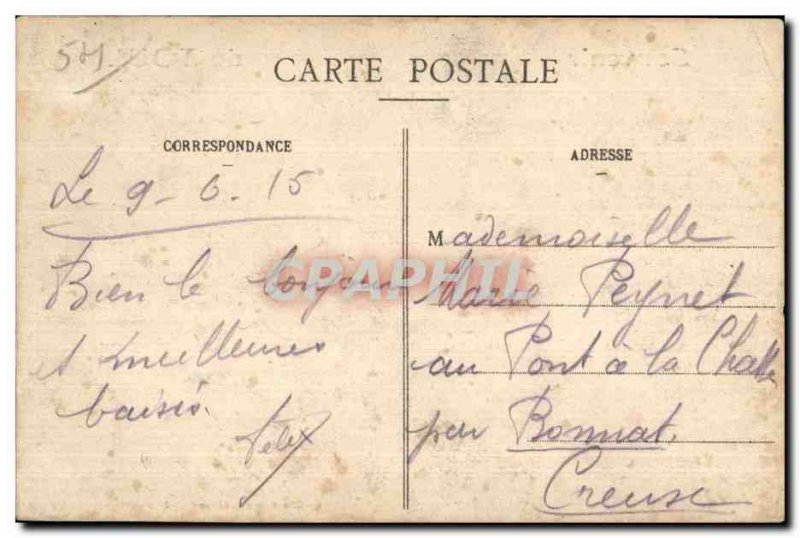 54
CARTE POSTALE
CORRESPONDANCE
Le 9-6-15
Bien le bonjour
et meilleures
baisés.
Félix
ADRESSE
Mademoiselle
Marie Peynet
au Pont à la Chatte
par Bonnat
Creuse
CPAPHIL